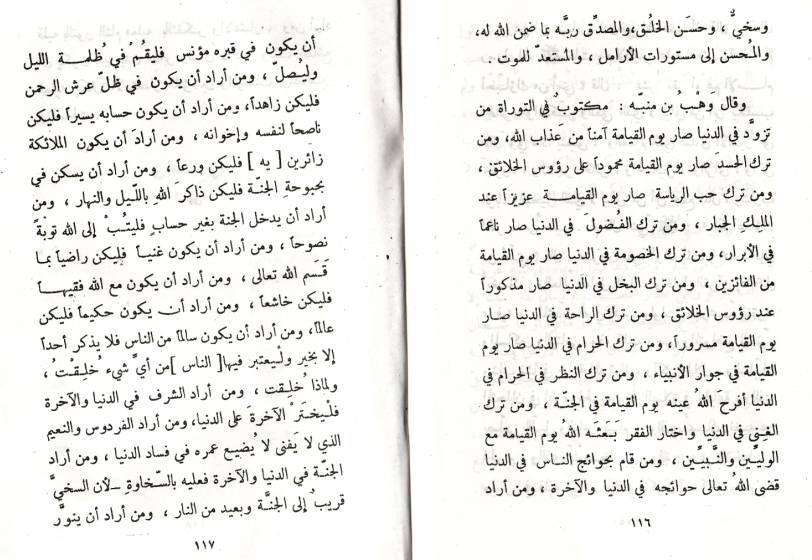 وسخيٌّ ، وحسَن الخلُق،والمصدِّق ربَّه بما ضمن الله له،
والمُحسن إلى مستورات الأرامل ، والمستعدّ للموت .
وقال وَهْبُ بن منبّه : مكتوبٌ في التوراة من
تزوَّد في الدنيا صار يوم القيامة آمناً من عذاب الله، ومن
ترك الحسدَ صار يوم القيامة محموداً على رؤوس الخلائق ،
ومن ترك حب الرياسة صار يوم القيامـــة عزيزاً عند
الملِكِ الجبار ، ومن ترك الفُضولَ في الدنيا صار ناعماً
في الأبرار، ومن ترك الخصومة في الدنيا صار يوم القيامة
من الفائزين ، ومن ترك البخل في الدنيا صار مذكوراً
عند رؤوس الخلائق ، ومن ترك الراحة في الدنيا صار
يوم القيامة مسروراً، ومن ترك الحرام في الدنيا صار يوم
القيامة في جوار الأنبياء ، ومن ترك النظر في الحرام في
الدنيا أفرحَ اللهُ عينه يوم القيامة في الجنّة ، ومن ترك
الغنى في الدنيا واختار الفقر بَعَثَه اللهُ يوم القيامة مع
الوليين والنَّبيِّين ، ومن قام بحوائج الناس في الدنيا
قضى اللهُ تعالى حوائجه في الدنيا والآخرة ، ومن أراد
١١٦
أن يكون في قبره مؤنس فليقُمْ في ظُلمـــة الليل
وليُصلّ ، ومن أراد أن يكون في ظلّ عرش الرحمن
فليكن زاهداً، ومن أراد أن يكون حسابه يسيراً فليكن
ناصحاً لنفسه وإخوانه ، ومن أرادَ أن يكون الملائكة
زائرين [ يه ] فليكن ورعاً ، ومن أراد أن يسكن في
بحبوحةِ الجنّة فليكن ذاكرَ اللهِ باللّيل والنهار ، ومن
أراد أن يدخل الجنة بغير حسابٍ فليتُبْ إلى الله توبةً
نصوحاً ، ومن أراد أن يكون غنياً فليكن راضياً بما
قَسَم الله تعالى ، ومن أراد أن يكون مع الله فقيهـــاً
فليكن خاشعاً ، ومن أراد أن يكون حكيماً فليكن
عالماً، ومن أراد أن يكون سالماً من الناس فلا يذكر أحداً
إلا بخير ولْيعتبر فيها[ الناس ]من أيِّ شيءٍ خُلِقتْ ،
ولماذا خُلِقت ، ومن أراد الشرف في الدنيا والآخرة
فلْيختَرْ الآخرةَ على الدنيا، ومن أراد الفردوس والنعيم
الذي لا يَفنى لا يُضيـع عمره في فساد الدنيا ، ومن أراد
الجنّة في الدنيا والآخرة فعليه بالسّخاوةِ –لأن السخيَّ
قريبٌ إلى الجنَّة وبعيد من النار ، ومن أراد أن ينورَّ
١١٧